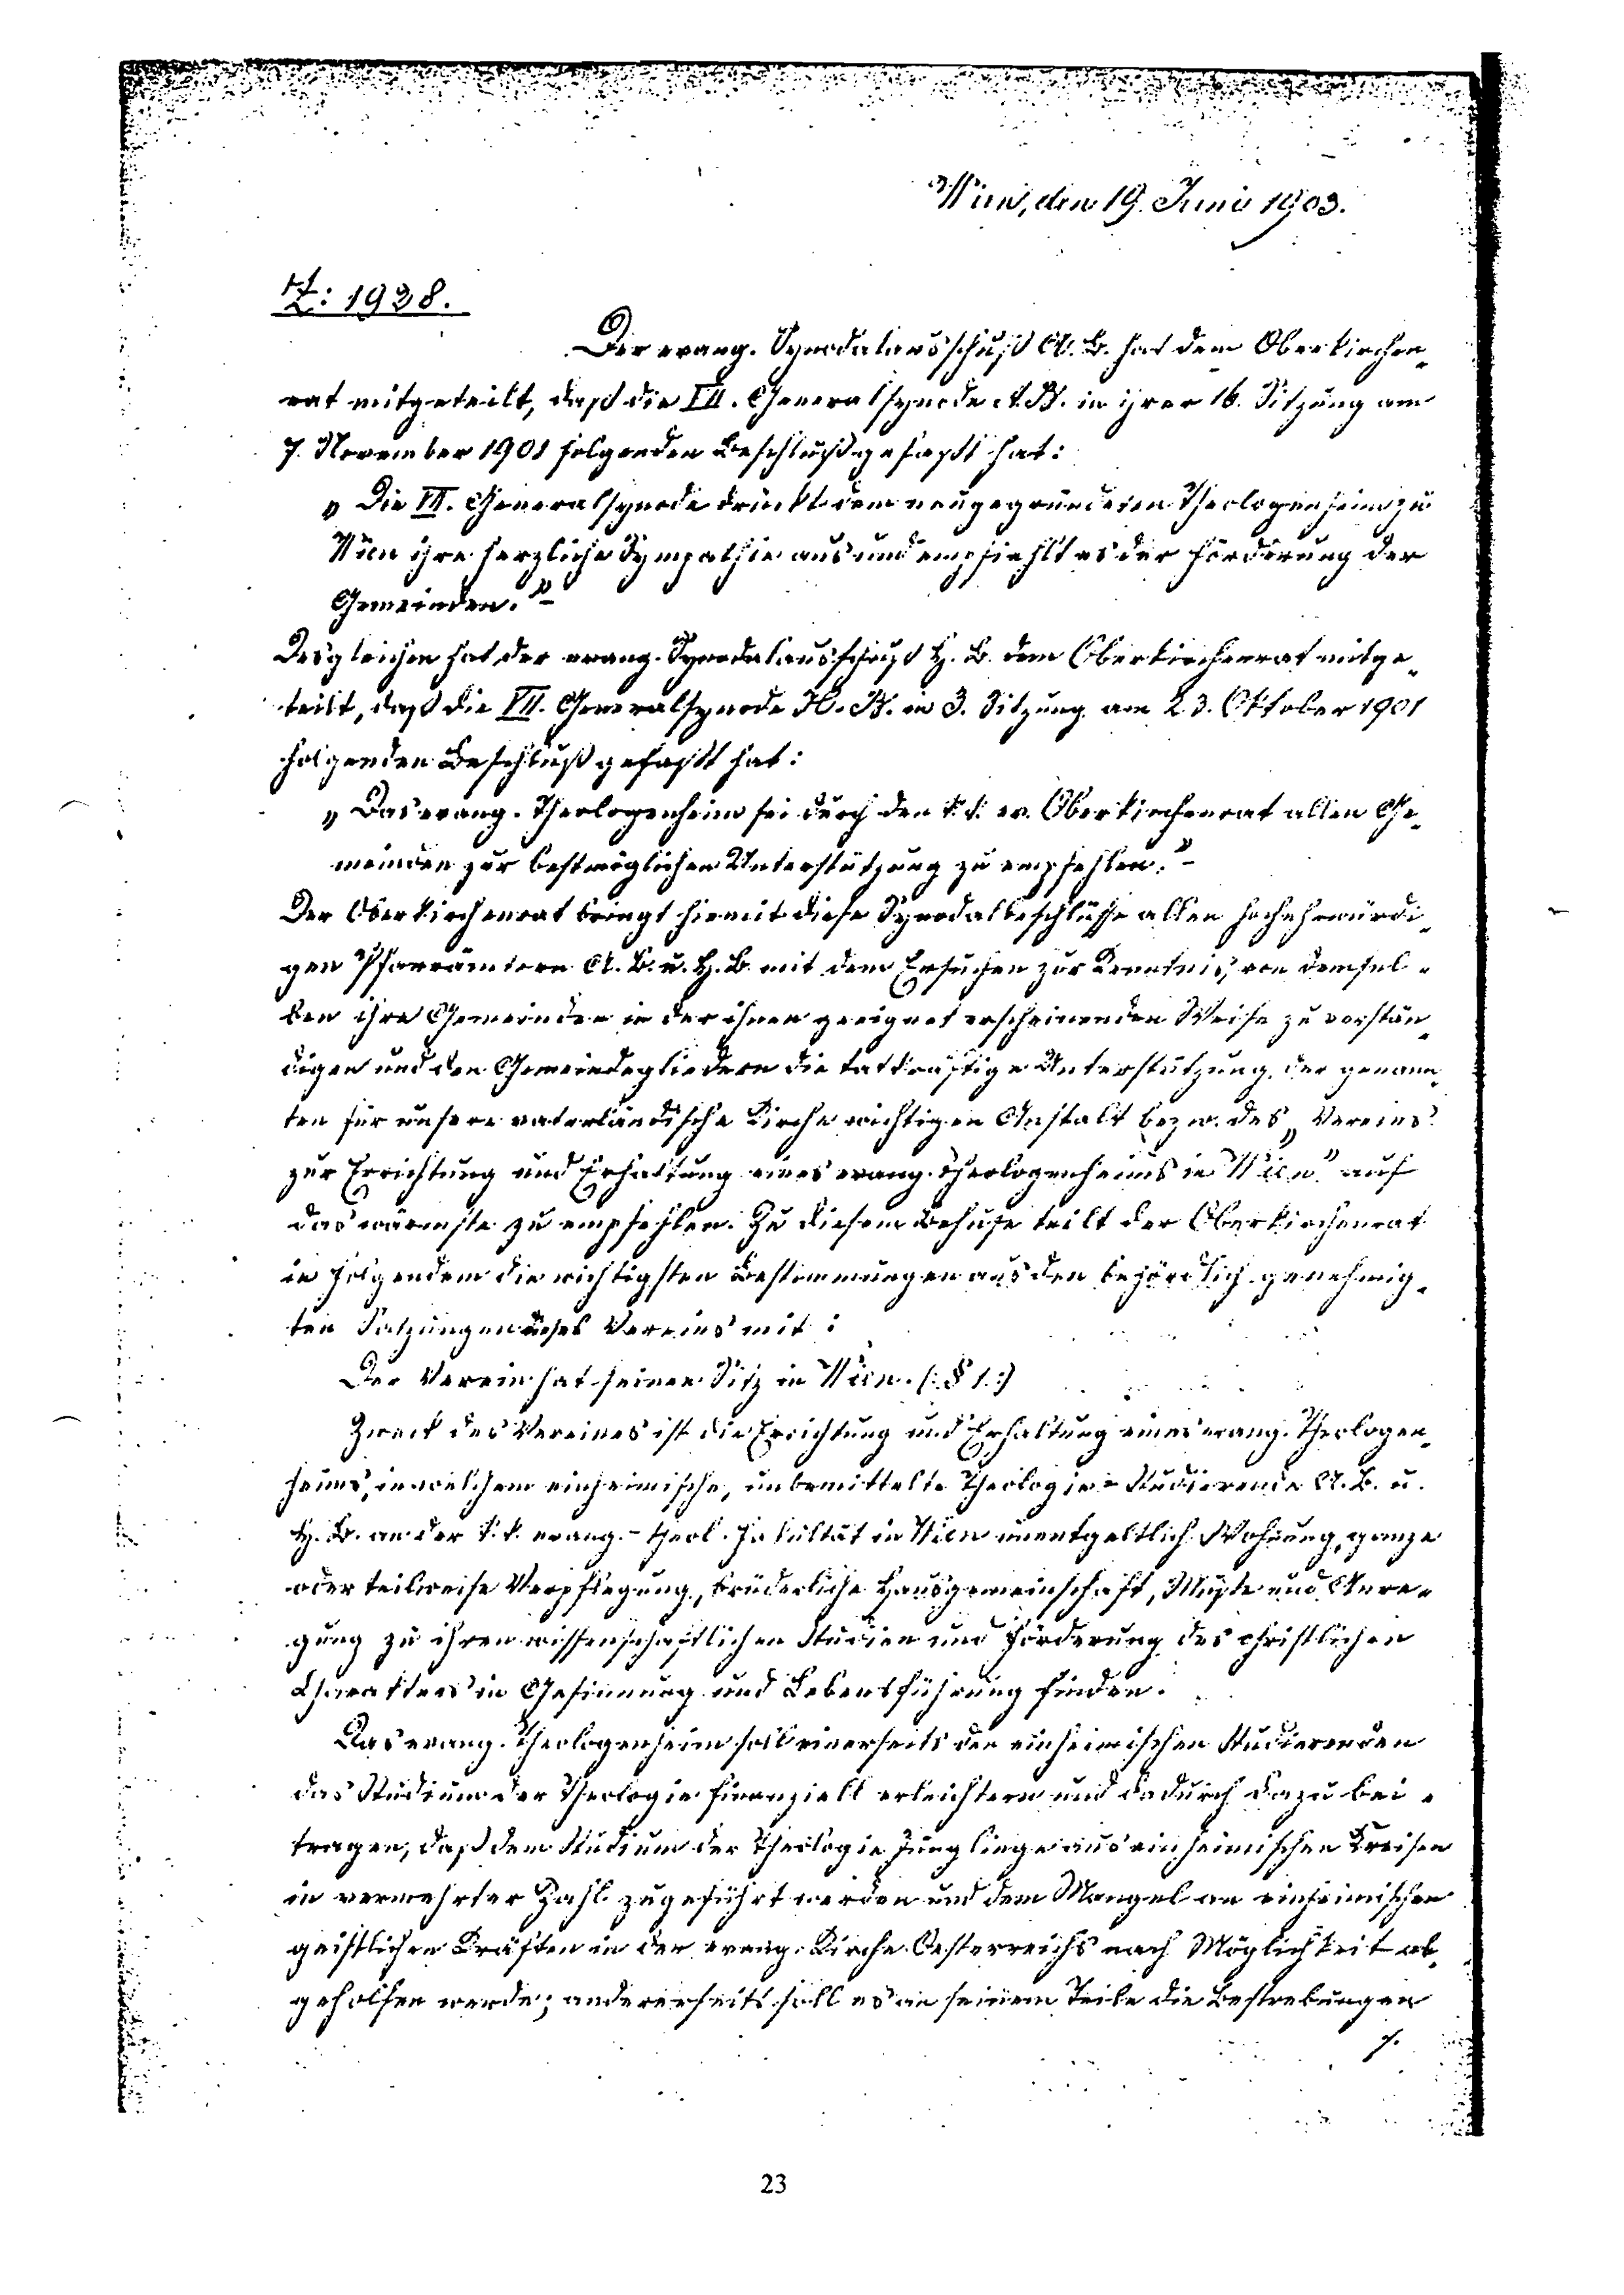 Wien, den 19. Juni 1903.
Z: 1938.
Der evang. Synodalausschuß A. B. hat dem Oberkirchen-
rat mitgeteilt, daß die VII. Generalsynode A. B. in ihrer 16. Sitzung am
7. November 1901 folgenden Beschluß gefaßt hat:
„Die VII. Generalsynode drückt dem neugegründeten Theologenheim zu
Wien ihre herzliche Sympathie aus und empfiehlt es der Förderung der
Gemeinden."-
Desgleichen hat der evang. Synodalausschuß H. B. dem Oberkirchenrat mitge-
teilt, daß die VII. Generalsynode H. B. in 3. Sitzung am 23. Oktober 1901
folgenden Beschluß gefaßt hat:
„Das evang. Theologenheim sei durch den k. k. ev. Oberkirchenrat allen Ge-
meinden zur bestmöglichen Unterstützung zu empfehlen."-
Der Oberkirchenrat bringt hiemit diese Synodalbeschlüsse allen hochehrwürdi-
gen Pfarrämtern A. B. u. H. B. mit dem Ersuchen zur Kenntnis, von demsel-
ben ihre Gemeinden in der ihnen geeignet erscheinenden Weise zu verstän-
digen und den Gemeindegliedern die tatkräftige Unterstützung der genann-
ten für unsere vaterländische Kirche wichtigen Anstalt bezw. des „Vereins
zur Errichtung und Erhaltung eines evang. Theologenheims in Wien" auf
das wärmste zu empfehlen. Zu diesem Behufe teilt der Oberkirchenrat
in folgendem die wichtigsten Bestimmungen aus den behördlich genehmig-
ten Satzungen dieses Vereins mit:
Der Verein hat seinen Sitz in Wien. (: § 1. :)
Zweck des Vereines ist die Errichtung und Erhaltung eines evang. Theologen-
heims, in welchem einheimische, unbemittelte Theologie-Studierende A. B. u.
H. B. an der k. k. evang.-theol. Fakultät in Wien unentgeltlich Wohnung, ganze
oder teilweise Verpflegung, brüderliche Hausgemeinschaft, Muße und Anre-
gung zu ihren wissenschaftlichen Studien und Förderung des christlichen
Charakters in Gesinnung und Lebensführung finden.
Das evang. Theologenheim soll einerseits den einheimischen Studierenden
das Studium der Theologie finanziell erleichtern und dadurch dazu bei-
tragen, daß dem Studium der Theologie Jünglinge aus einheimischen Kreisen
in vermehrter Zahl zugeführt werden und dem Mangel an einheimischen
geistlichen Kräften in der evang. Kirche Oesterreichs nach Möglichkeit ab-
geholfen werde; andererseits soll es an seinem Teile die Bestrebungen
./.
23